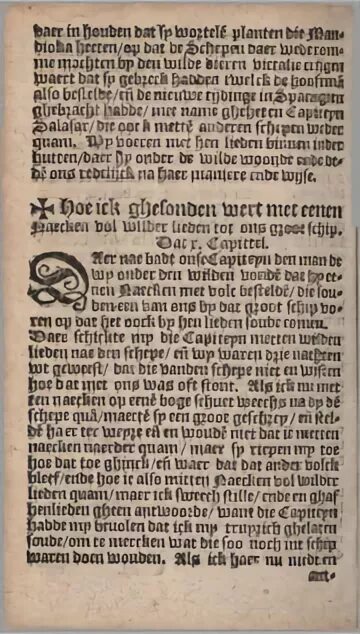 daer in houden dat sy wortelē planten die Man-
dioka heeten/op dat de Schepen daer wederom-
me mochten by den wilde dieren victalie crijgen
waert dat sy gebreck hadden twelck de hooftmā
also bestelde/eñ de nieuwe tydinge in Spaengien
ghebracht hadde/ met name gheheeten Capiteyn
Salasar/die oock mettē anderen schepen weder
quam. Wy voeren met hen lieden binnen inder
hutten/daer sy onder de wilde woonde ende de-
dē ons redelijck na haer maniere ende wijse.
✠ Hoe ick ghesonden wert met eenen
Naecken vol wilder lieden tot ons groot schip.
Dat x. Capittel.
DAer nae badt onse Capiteyn den man de
wy onder den wilden vondē dat hy ee-
nen Naecken met volc besteldē/ die sou-
den een van ons by dat groot schip voe-
ren op dat het oock by hen lieden soude comen.
Daer schickte my die Capiteyn metten wilden
lieden nae den schepe/ eñ wy waren drie nachten
wt geweest/ dat die vanden schepe niet en wisten
hoe dat met ons was oft stont. Als ick nu met
ten naecken op eenē boge schuet weechs na dy dē
schepe quā/maectē sy een groot geschrey/ eñ stel-
dē haer ter weyre eñ en woudē niet dat ic metten
naecken naerder quam/ maer sy riepen my toe
hoe dat toe ghinck/ eñ waer dat dat ander volck
bleef/ende hoe ic also mitten Naecken vol wilder
lieden quam/ maer ick sweech stille/ ende en ghaf
henlieden gheen antwoorde/ want die Capiteyn
hadde my bevolen dat ick my truyrich ghelaten
soude/om te mercken wat die soo noch int schip
waren doen wouden. Als ick haer nu niet en
ant-